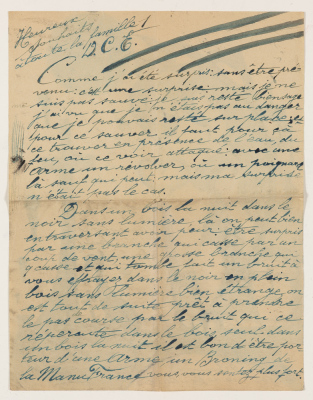 Heureux
souhaits
à toute la famille!
12 C.E.
Comme j'ai été surpris sans être pré
venu c'est une surprise mais je ne
suis pas sauvé je suis resté
j'ai vu que je n'étais pas au danger
que je pouvais resté sur place et
pour ce sauver il faut pour çà
ce trouver en présence de l'eau, du
feu, ou ce voir attaqué avec une
arme un révolver, où un poignard
là sauf qui peut, mais ma surprise
n'était pas le cas.
Dans un bois la nuit dans le
noir sans lumière, là on peut bien
en traversant avoir peur, être surpris
par une branche qui casse par un
coup de vent, une grosse branche qui
casse et qui tombe fait un bruit à
vous effrayer dans le noir en plein
bois, sans lumière bien étrange on
est tout de suite prêt à prendre
le pas course par le bruit qui ce
répercute dans le bois seul dans
un bois la nuit il est bon d'être por
teur d'une arme un Broning de
la Manu France vous vous sentez plus fort.